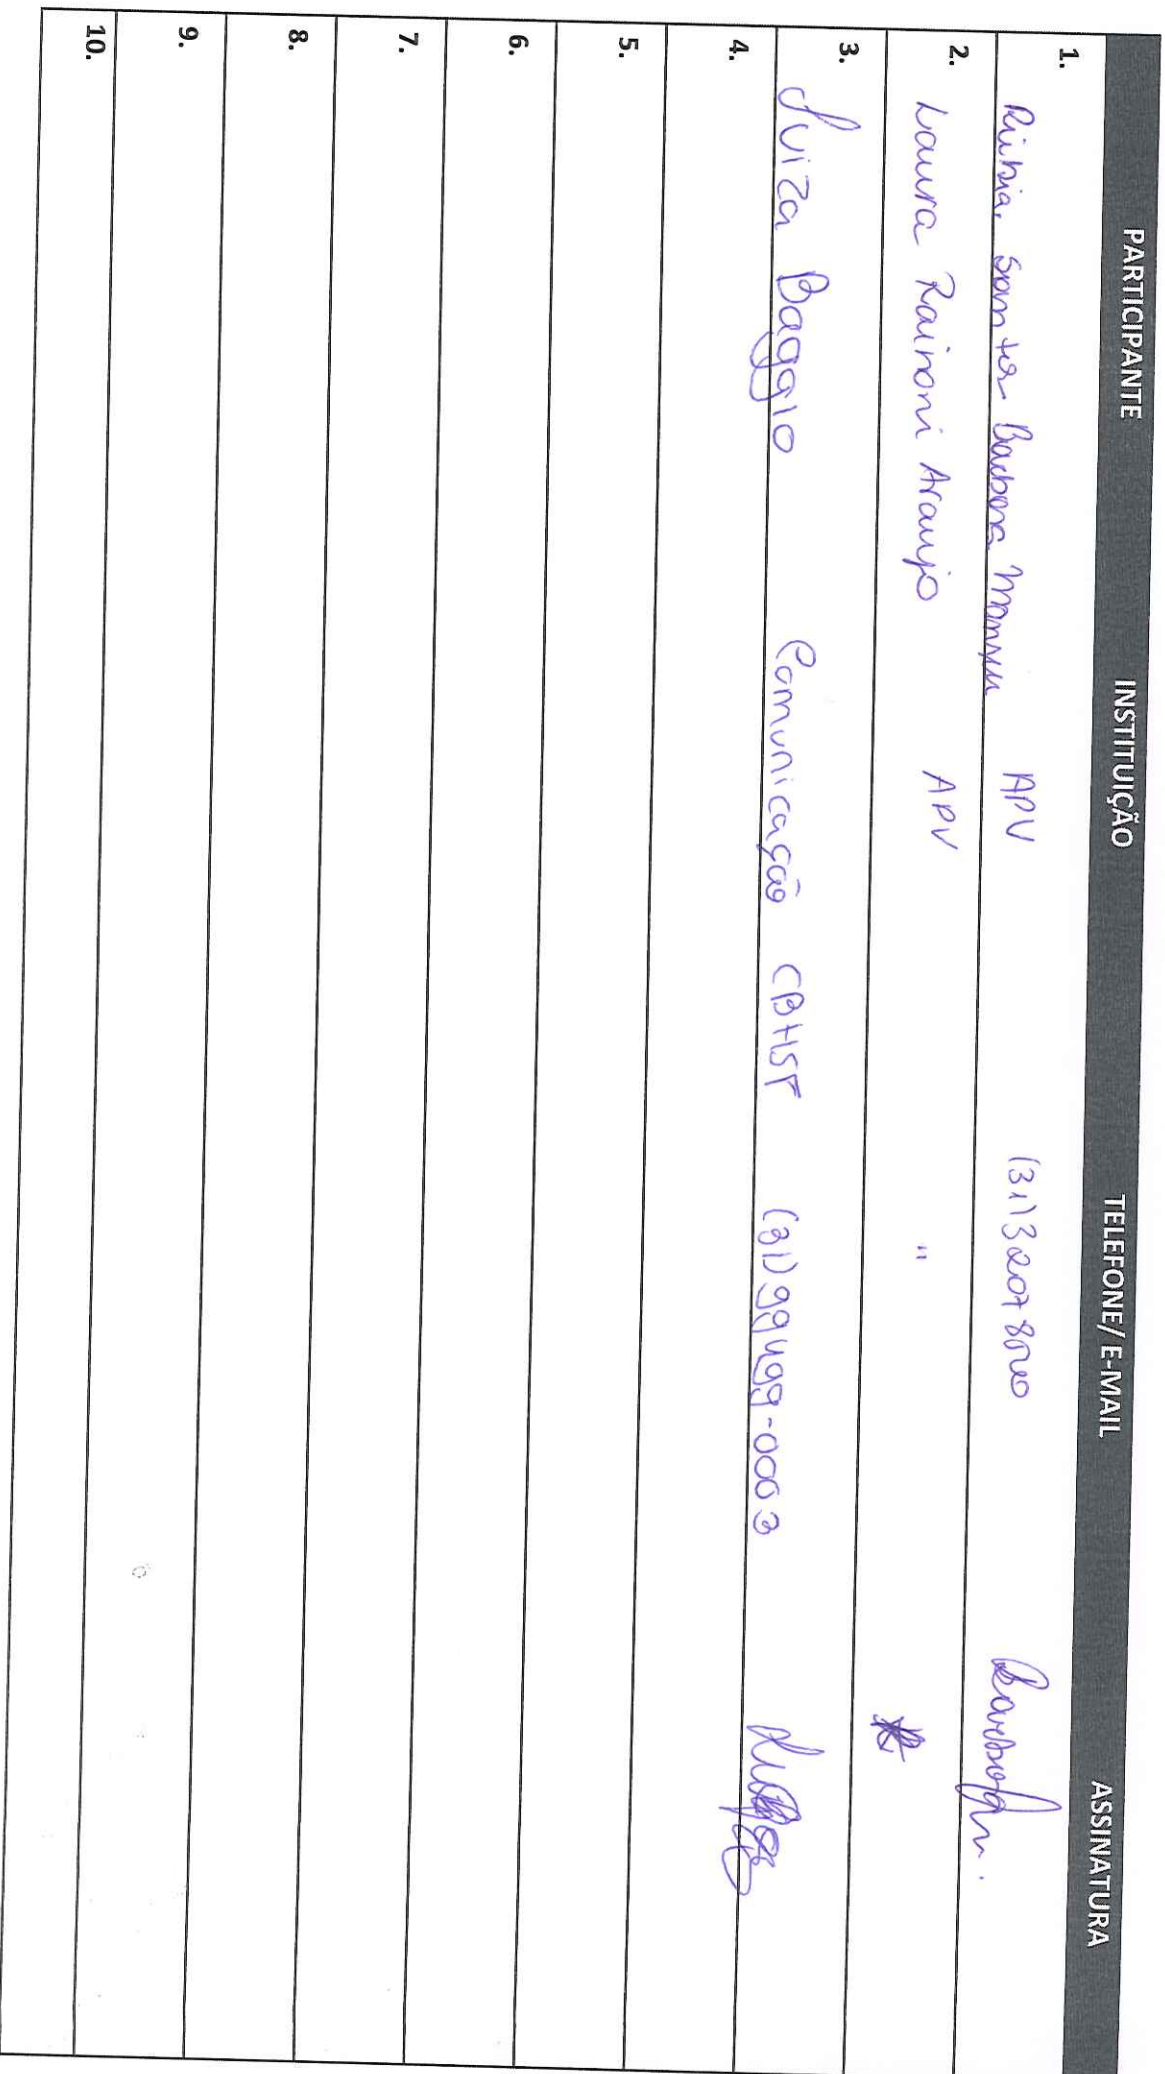 PARTICIPANTE INSTITUIÇÃO TELEFONE/ E-MAIL ASSINATURA
1. Rúbia Santos Barbosa APV (31)32078500
2. Laura Rainoni Araujo APV "
3. Luiza Baggio Comunicação CBHSF (31)99499-0003
4.
5.
6.
7.
8.
9.
10.